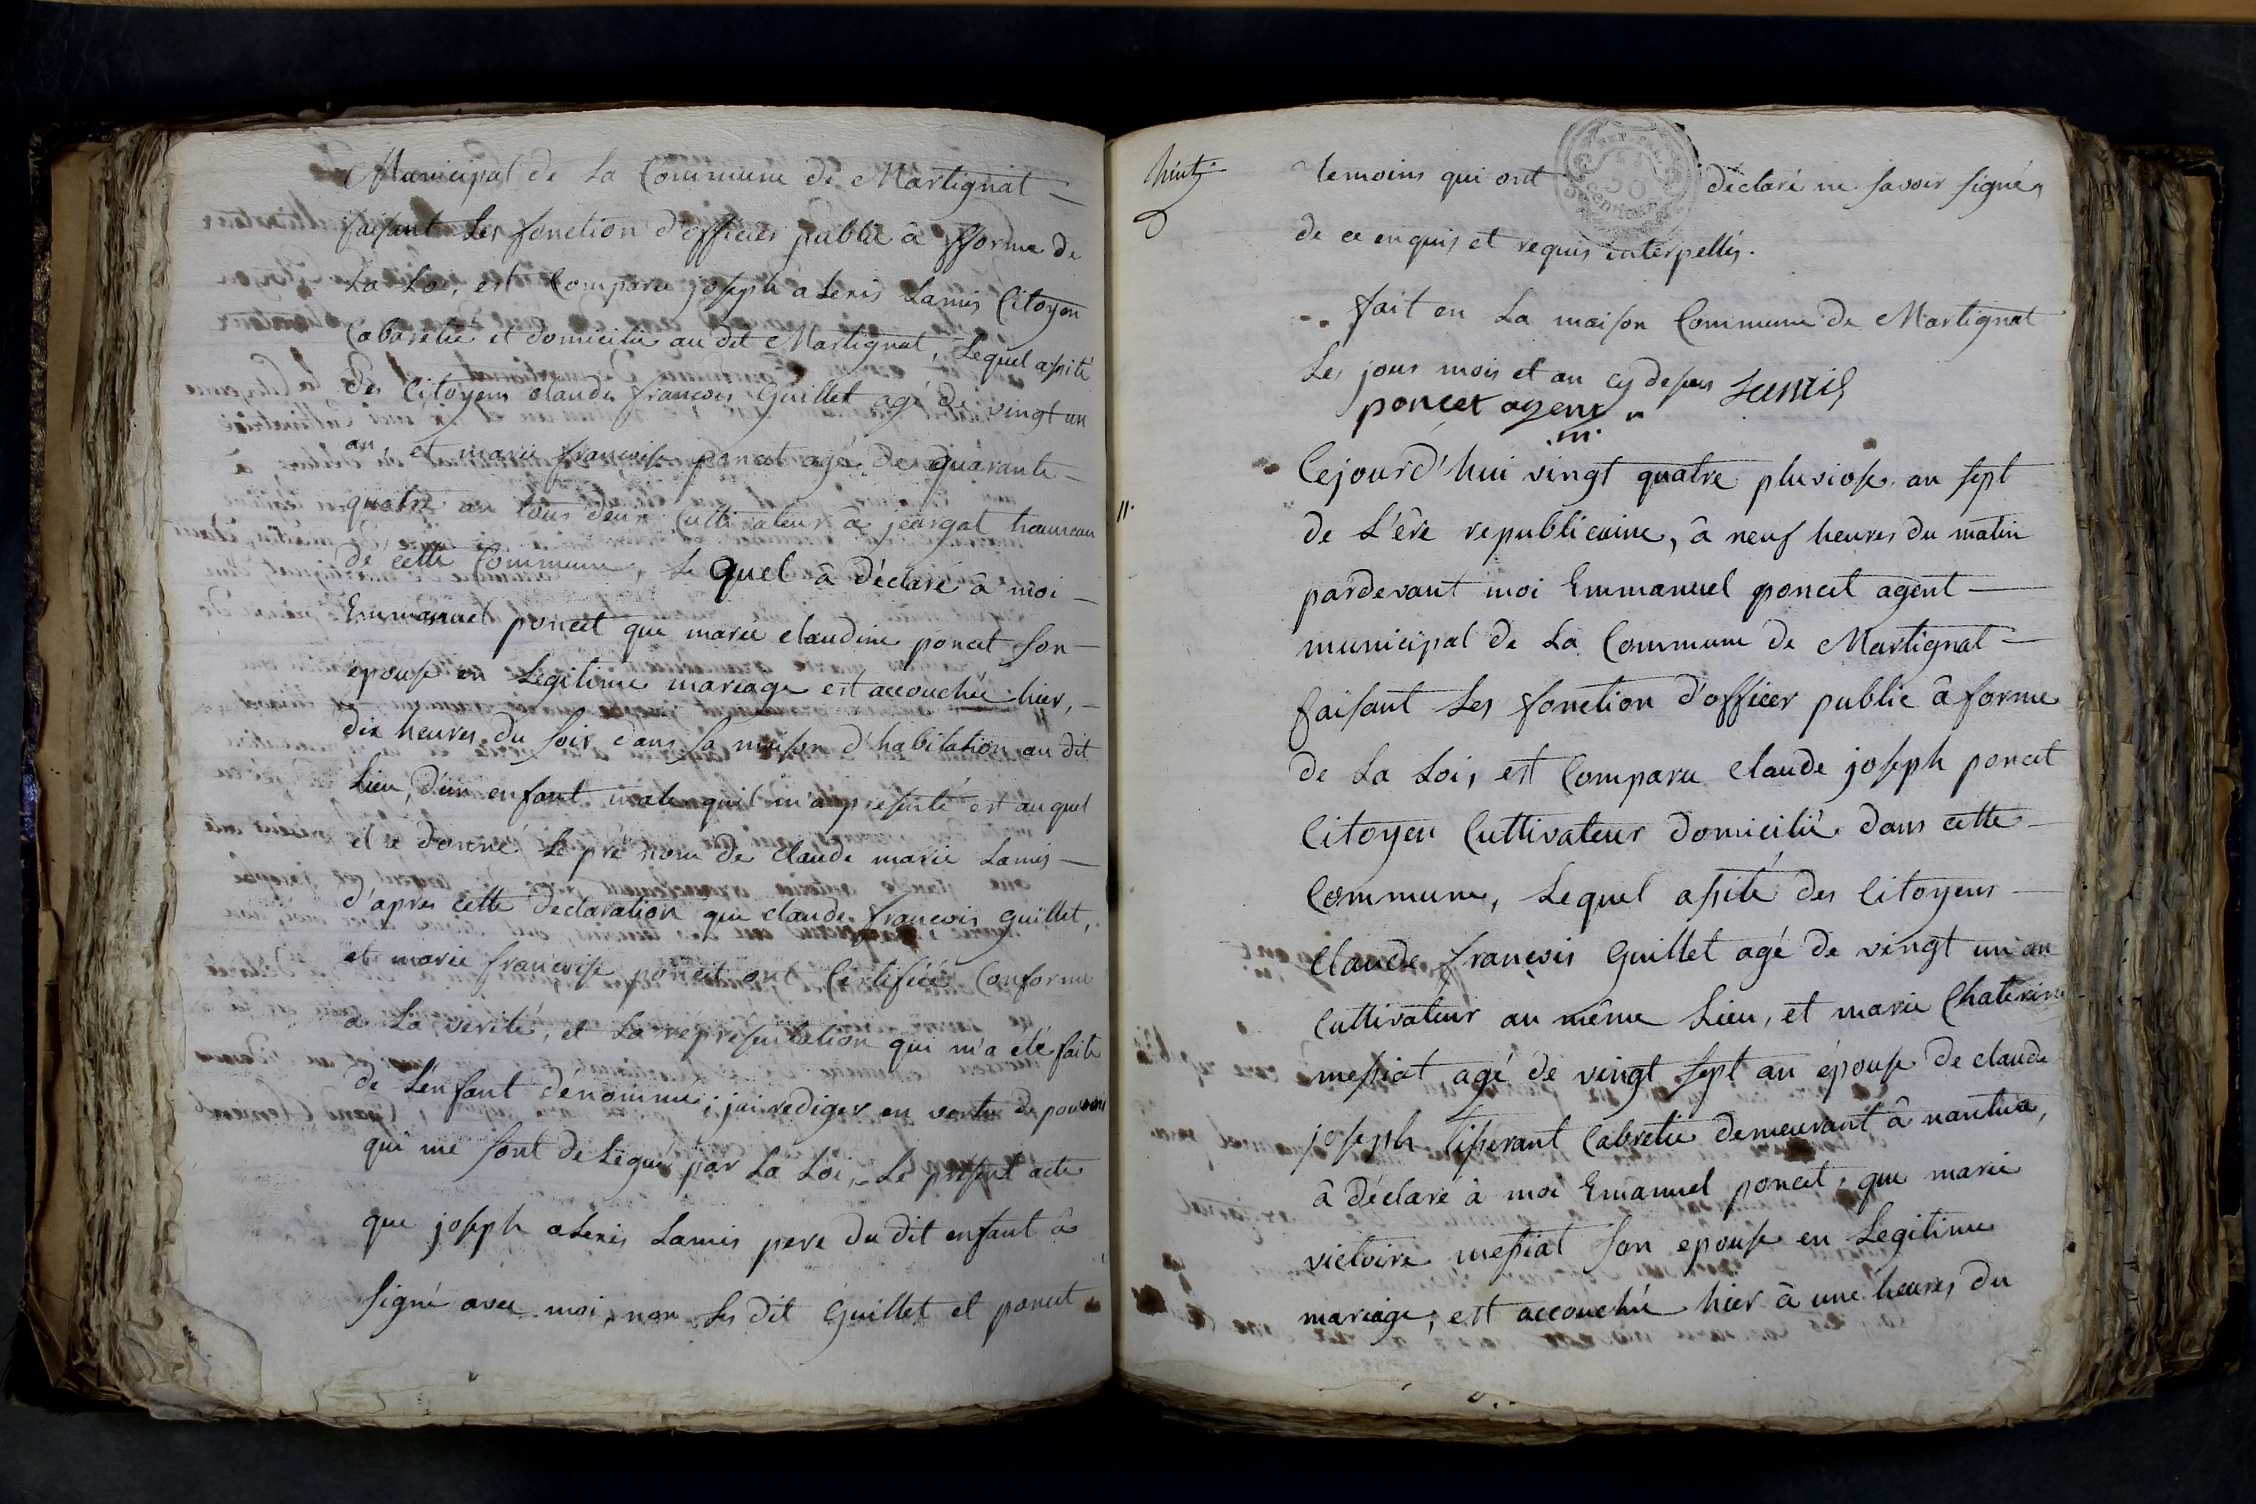 Municipal de La Commune de Martignat
faisant Les fonction d'officier public â fforme de
La Loi, est Comparu joseph aLexis Lamis Citoyen
Cabaretié et domicilié au dit Martignat, Lequel assité
des Citoyens claude françois Guillet agé de vingt un
an, et marie françoise poncet agée de quarante
quatre an tous deux Cultivateur â jeargat hameau
de cette Commune, Le quel â déclaré â moi
Emmanuel poncet que marie claudine poncet son
epouse en Legitime mariage est accouchée hier,
dix heures du soir dans sa maison d'habitation au dit
Lieu, d'un enfant male quil m'a presenté est auquel
il a donné Le pré nom de claude marie Lamis
d'apres cette déclaration que claude françois guillet,
et marie françoise poncet ont Certifiée Conforme
a La verité, et La representation qui m'a été faite
de L'enfant dénommé; jai rediger en vertu de pouvoir
qui me sont deLegué par La Loi, Le present acte
que joseph aLexis Lamis pere du dit enfant â
signé avec moi, non Les dit Guillet et poncet
temoins qui ont déclaré ne savoir signé
de ce enquis et requis interpellés.
fait en La maison Commune de Martignat
Les jour mois et an cy dessus Lamis
poncet agent
Cejourd'hui vingt quatre pluviose an sept
11.
de L'ére republicaine, â neuf heures du matin
pardevant moi Emmanuel poncet agent
municipal de La Commune de Martignat
faisant Les fonction d'officer public â forme
de La Loi, est Comparu claude joseph poncet
Citoyen Cultivateur domicilié dans cette
Commune, Lequel assité des Citoyens
claude françois Guillet agé de vingt un an
Cultivateur au même Lieu, et marie Chaterine
messiat agé de vingt sept an épouse de claude
joseph Cabretié demeurant â nantua,
â déclaré à moi Emanuel poncet, que marie
victoire messiat son epouse en Legitime
mariage, est accouchée hier â une heures du